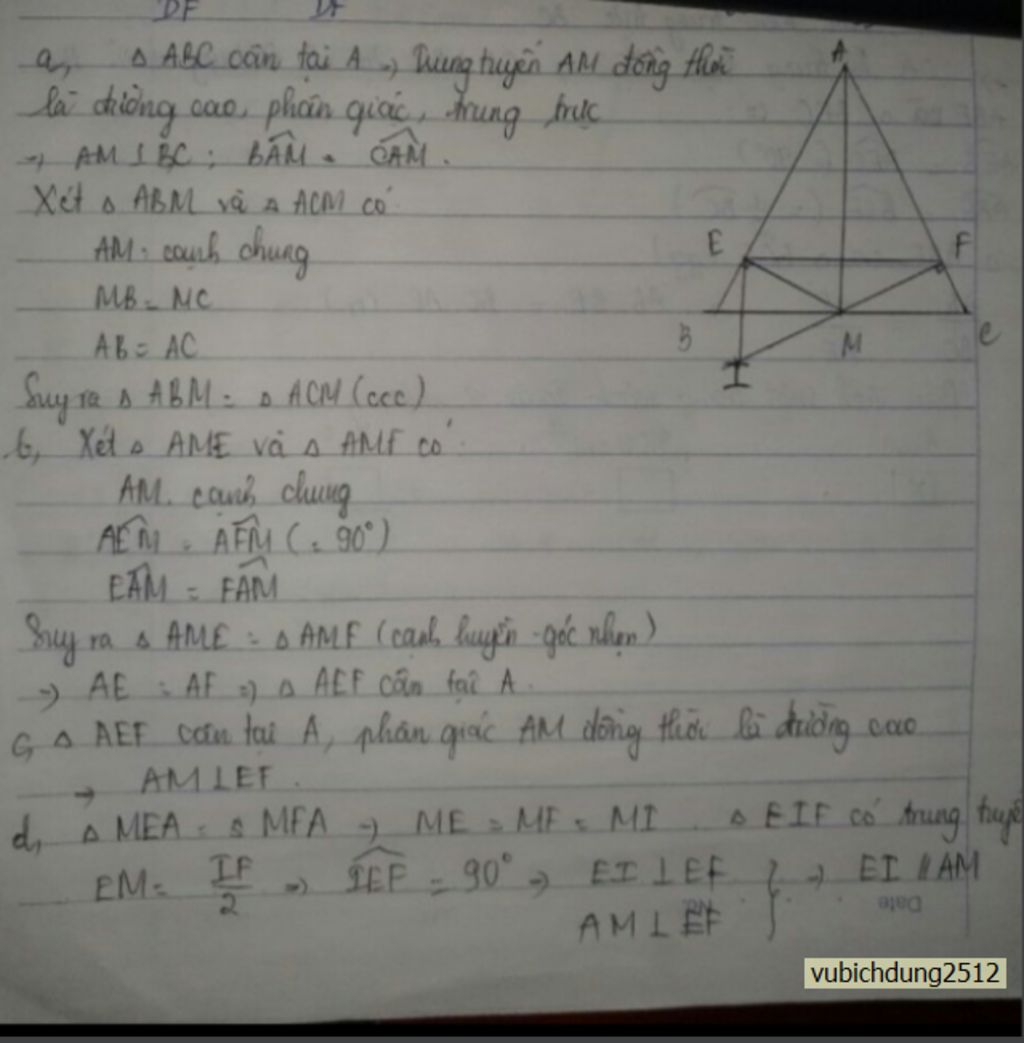 DF DF
a, △ ABC cân tại A → Trung tuyến AM đồng thời
là đường cao, phân giác, trung trực
→ AM ⊥ BC ; BÂM = CÂM .
Xét △ ABM và △ ACM có
AM : cạnh chung
MB = MC
AB = AC
Suy ra △ ABM = △ ACM (ccc)
b, Xét △ AME và △ AMF có
AM . cạnh chung
AÊM = AF̂M ( = 90°)
EÂM = FÂM
Suy ra △ AME = △ AMF (cạnh huyền - góc nhọn)
→ AE = AF ⇒ △ AEF cân tại A .
c, △ AEF cân tại A, phân giác AM đồng thời là đường cao
→ AM ⊥ EF .
d, △ MEA = △ MFA → ME = MF = MI . △ EIF có trung tuyế
EM = IF/2 ⇒ IÊF = 90° ⇒ EI ⊥ EF } → EI // AM
AM ⊥ EF
A
E
F
B
M
C
I
No.
Date
vubichdung2512